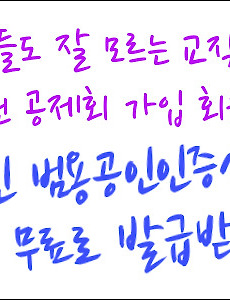 들도 잘 모르는 교직
공제회 가입 회
범용공인인증서
무료로 발급받